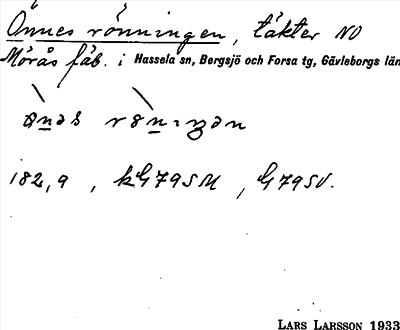 Önnes rönningen, täkter NO
Mörås fäb. i Hassela sn, Bergsjö och Forsa tg, Gävleborgs län
182,9, kG79SM, G79SV.
LARS LARSSON 1933